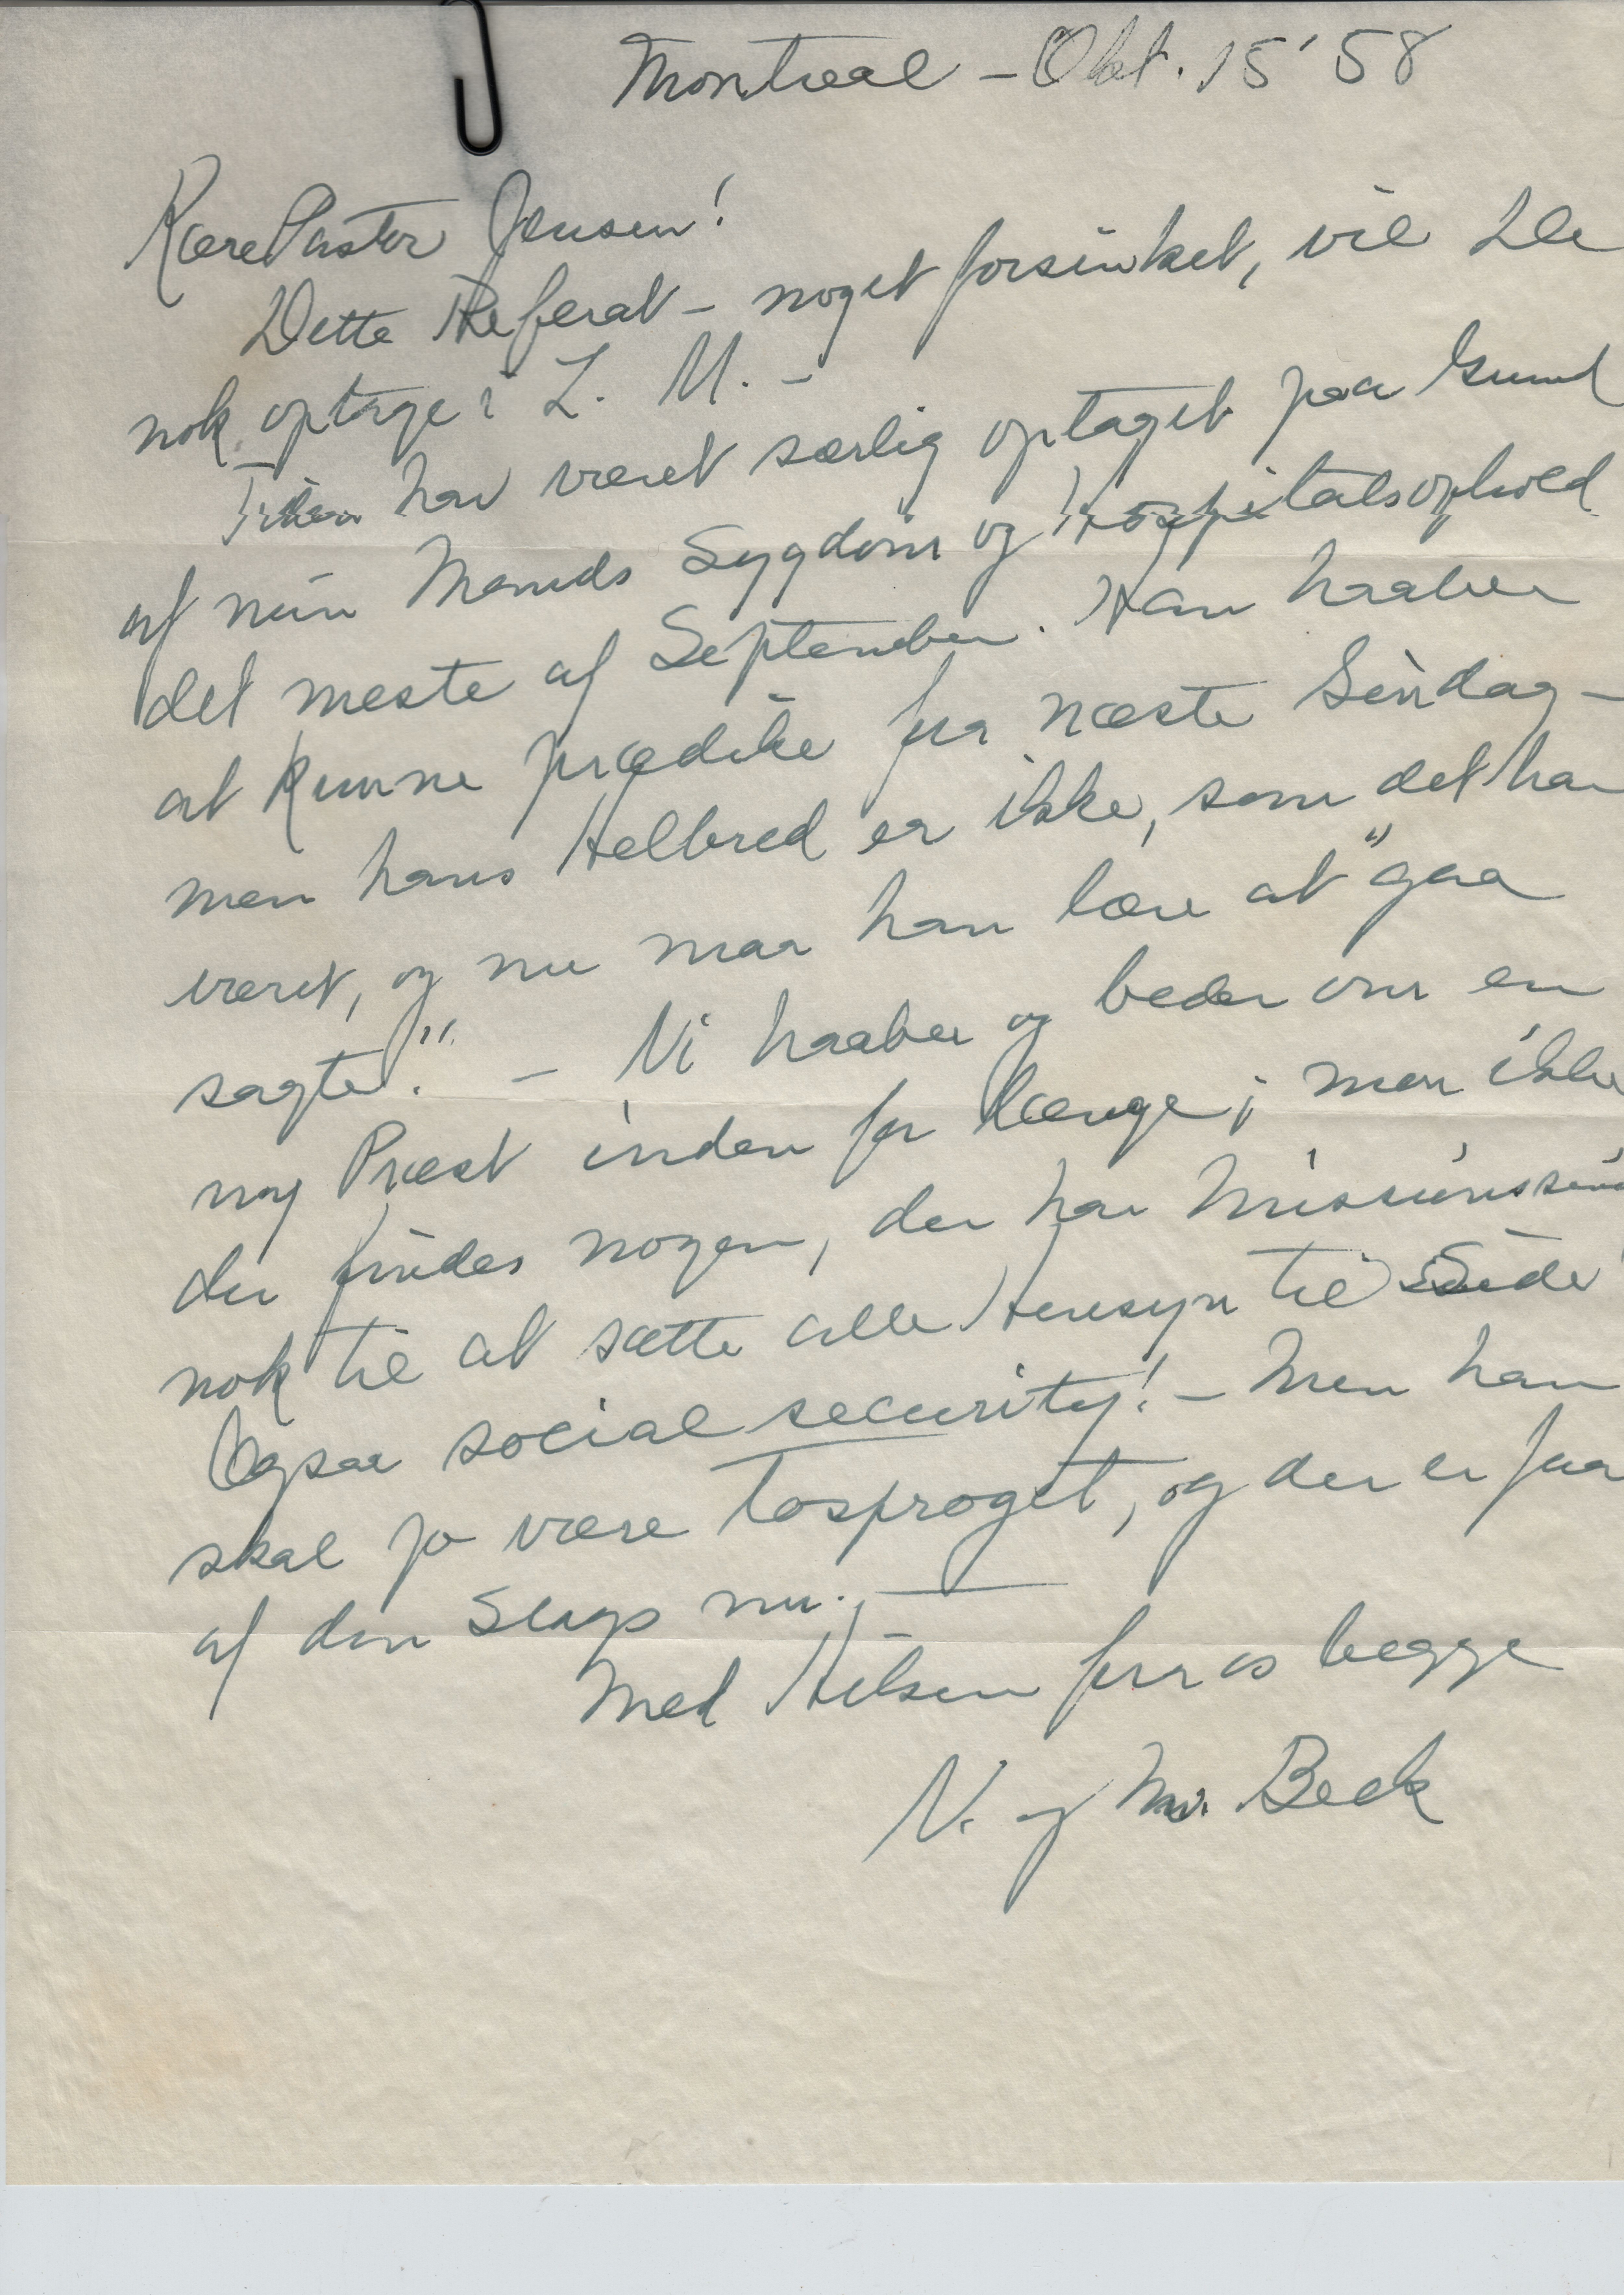 Montreal - Okt. 15' 58
Kære Pastor Jensen!
Dette Referat - noget forsinket, vil De
nok optage i L. M. -
Tiden har været særlig optaget paa Grund
af min Mands Sygdom og Hospitalsophold
det meste af September. Han haaber
at kunne prædike fra næste Søndag -
men hans Helbred er ikke, som det har
været, og nu maa han lære at "gaa
sagte". - Vi haaber og beder om en
ny Præst inden for længe; men ikke
der findes nogen, der har Missionssind
nok til at sætte alle Hensyn til Side
Ogsaa social security! - Men han
skal jo være tosproget, og der er faa
af den Slags nu. -
Med Hilsen fra os begge
V. og M. Beck